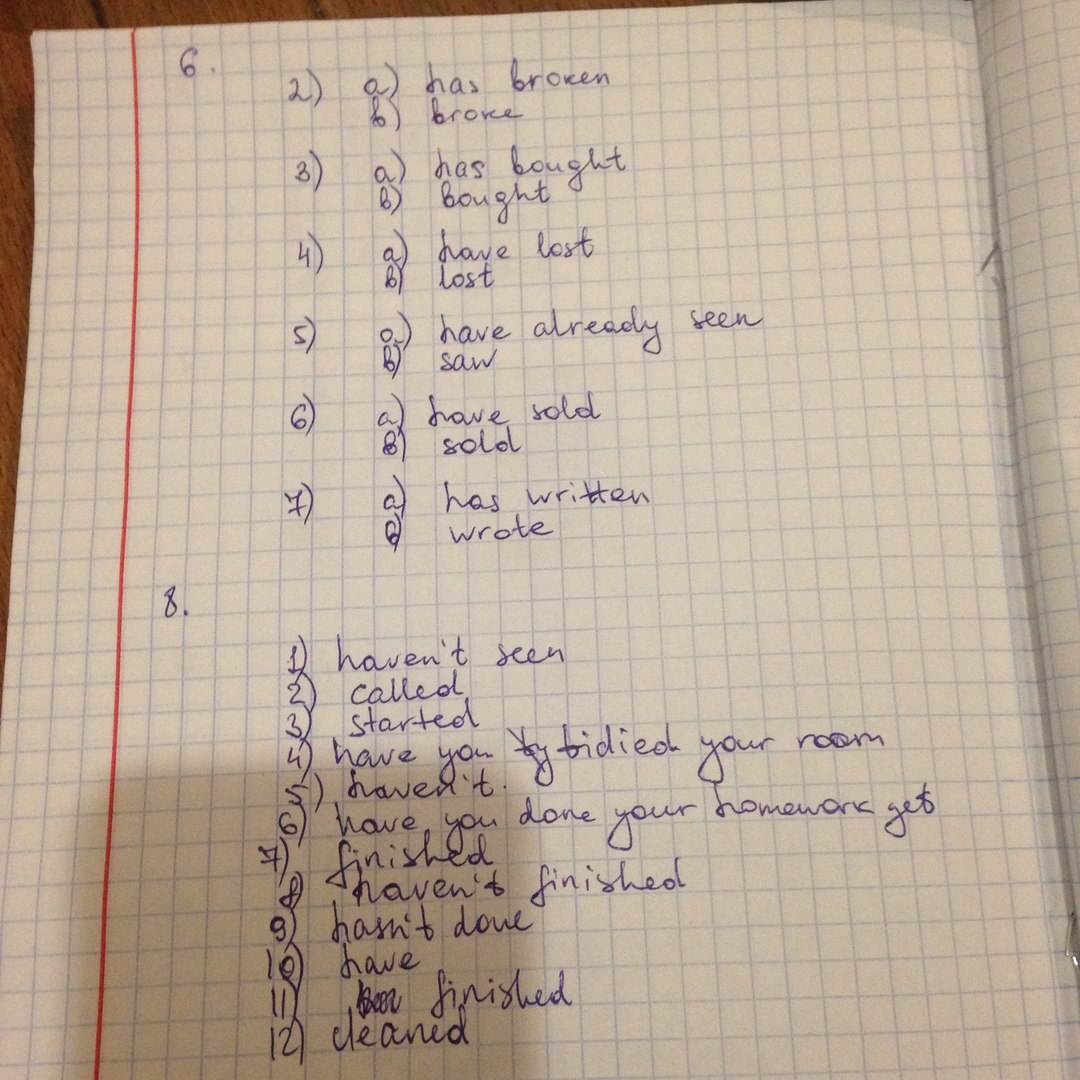 6.
2) a) has broken
b) broke
3) a) has bought
b) bought
4) a) have lost
b) lost
5) a) have already seen
b) saw
6) a) have sold
b) sold
7) a) has written
b) wrote
8.
1) haven't seen
2) called
3) started
4) have you tidied your room
5) haven't.
6) have you done your homework yet
7) finished
8) haven't finished
9) hasn't done
10) have
11) finished
12) cleaned